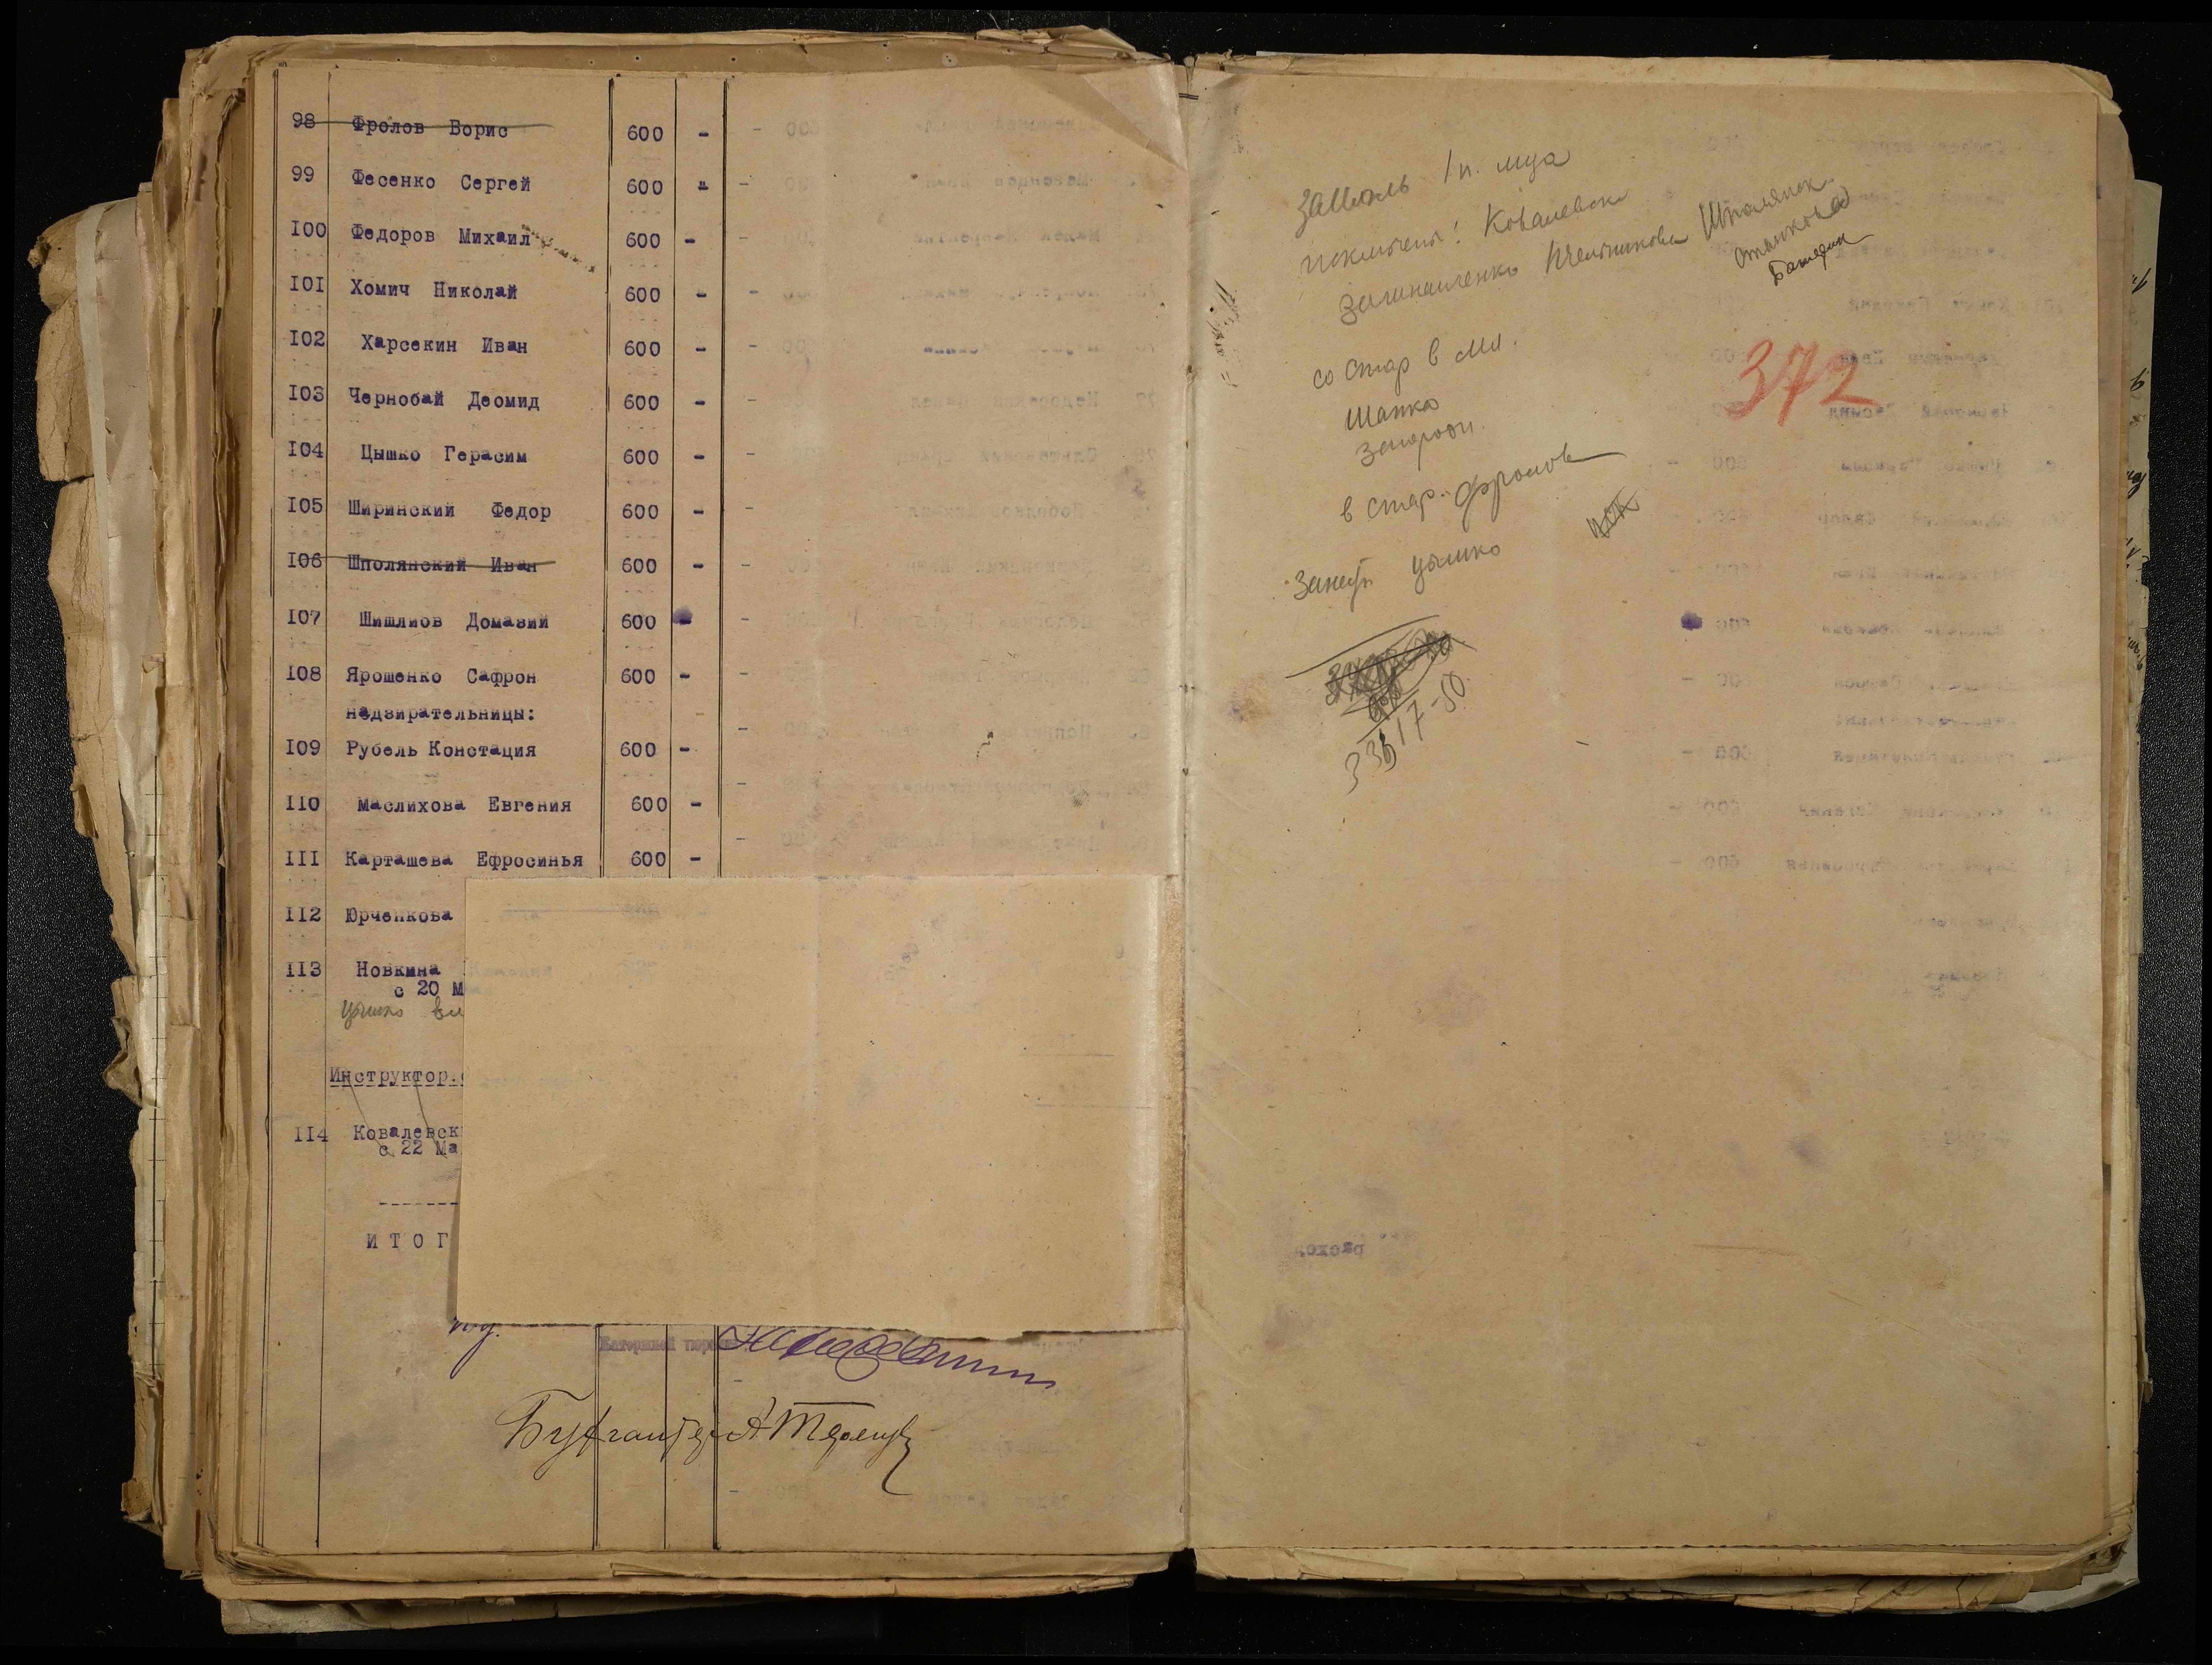 98 Фролов Борис 600 -
99 Фесенко Сергей 600 "
100 Федоров Михаил 600 -
101 Хомич Николай 600 -
102 Харсекин Иван 600 -
103 Чернобай Деомид 600 -
104 Цышко Герасим 600 -
105 Ширинский Федор 600 -
106 Шполянский Иван 600 -
107 Шишлиов Домазий 600 -
108 Ярошенко Сафрон 600 -
надзирательницы:
109 Рубель Констация 600 -
110 Маслихова Евгения 600 -
111 Карташева Ефросинья 600 -
112 Юрченкова
113 Новкина
с 20 М
Цышко
Инструктор.
114 Ковалевск
с 22 Ма
И Т О Г
Каторжной тюрь
Бухгалтер А
За Июль 1 п. м-ца
исключены: Ковалевск
Шполянск.
со стар в мл.
Шапка
в стар. Фролов
Цышко
372
33617-50